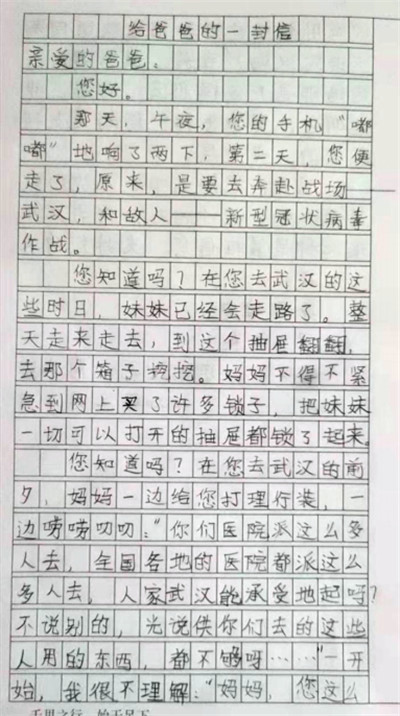 给爸爸的一封信
亲爱的爸爸：
您好。
那天，午夜，您的手机“嘟
嘟”地响了两下，第二天，您便
走了，原来，是要去奔赴战场——
武汉，和故人——新型冠状病毒
作战。
您知道吗？在您去武汉的这
些时日，妹妹已经会走路了。整
天走来走去，到这个抽屉翻翻，
去那个箱子挖挖。妈妈不得不紧
急到网上买了许多锁子，把妹妹
一切可以打开的抽屉都锁了起来。
您知道吗？在您去武汉的前
夕，妈妈一边给您打理行装，一
边唠唠叨叨：“你们医院派这么多
人去，全国各地的医院都派这么
多人去，人家武汉能承受地起吗？
不说别的，光说供你们去的这些
人用的东西，都不够呀……”一开
始，我很不理解：“妈妈，您这么
千里之行，始于足下